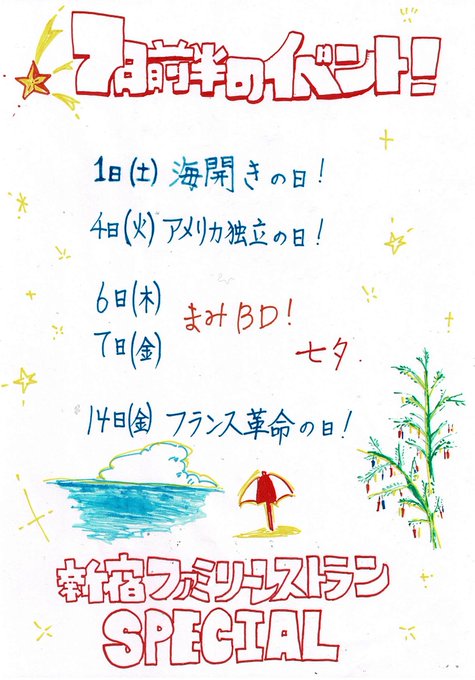 7月前半のイベント!
1日(土) 海開きの日!
4日(火) アメリカ独立の日!
6日(木)
まみBD!
7日(金)
七夕.
14日(金) フランス革命の日!
新宿ファミリーレストラン
SPECIAL